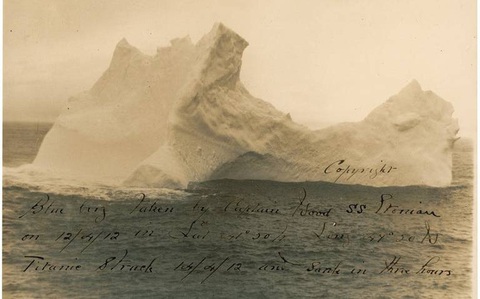 Copyright
Blue berg Taken by Captain Wood SS Etonian
on 12/4/12 in Lat W
Titanic Struck 14/4/12 and Sank in three hours